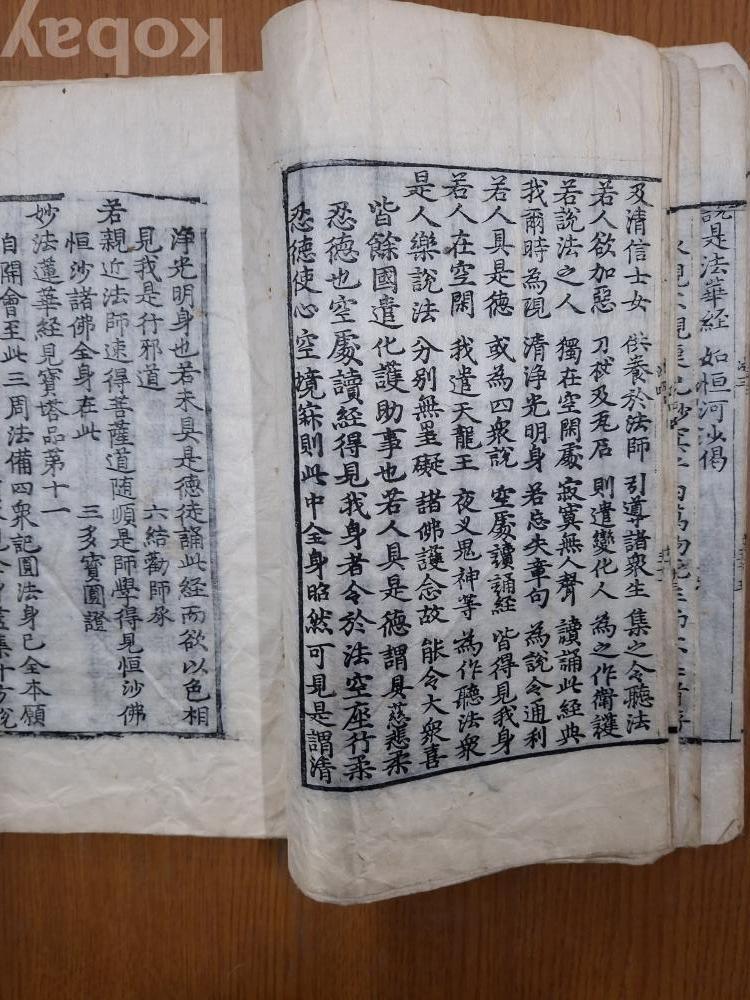 kobay
說是法華經 如恒河沙偈
及清信士女 供養於法師 引導諸衆生 集之令聽法
若人欲加惡 刀杖及瓦石 則遣變化人 為之作衛護
若說法之人 獨在空閑處 寂寞無人聲 讀誦此經典
我爾時為現 清淨光明身 若忘失章句 為說令通利
若人具是德 或為四衆說 空處讀誦經 皆得見我身
若人在空閑 我遣天龍王 夜叉鬼神等 為作聽法衆
是人樂說法 分別無罣礙 諸佛護念故 能令大衆喜
皆餘國遣化護助事也若人具是德謂具慈悲柔
忍德也空處讀經得見我身者令於法空座行柔
忍德使心空境寂則此中全身昭然可見是謂清
淨光明身也若未具是德徒誦此經而欲以色相
見我是行邪道 六結勸師承
若親近法師速得菩薩道隨順是師學得見恒沙佛
恒沙諸佛全身在此 三多寶圓證
妙法蓮華經見寶塔品第十一
自開會至此三周法備四衆記圓法身已全本願